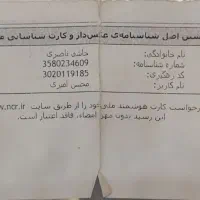 اصل شناسنامه‌ی عکس‌دار و کارت شناسایی
نام خانوادگی: ناصری
شماره شناسنامه: 3580234609
کد رهگیری: 3020119185
نام کاربر: محسن امیری
درخواست کارت هوشمند ملی خود را از طریق سایت www.ncr.ir
این رسید بدون مهر و امضاء، فاقد اعتبار است.